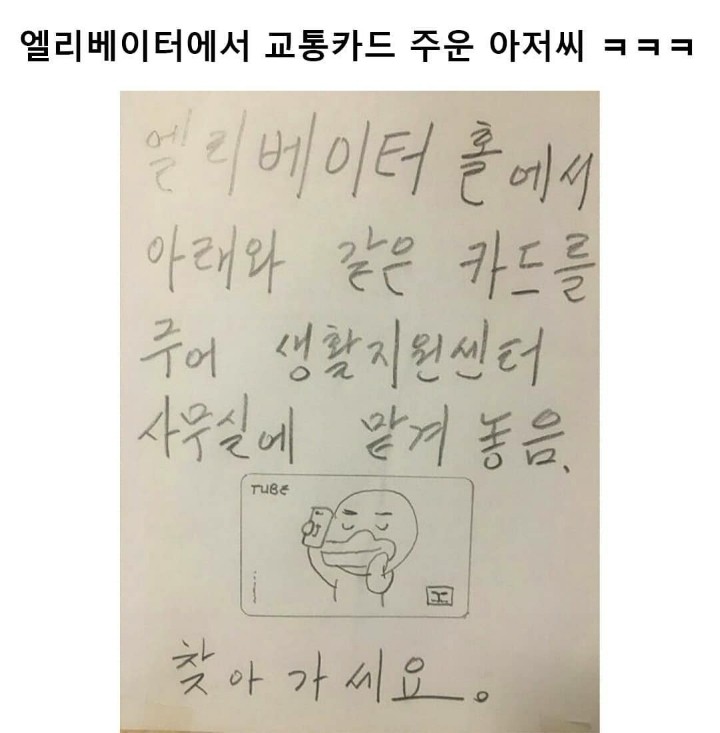 엘리베이터에서 교통카드 주운 아저씨 ㅋㅋㅋ
엘리베이터 홀에서
아래와 같은 카드를
주어 생활지원센터
사무실에 맡겨 놓음.
TUBE
찾아가세요.